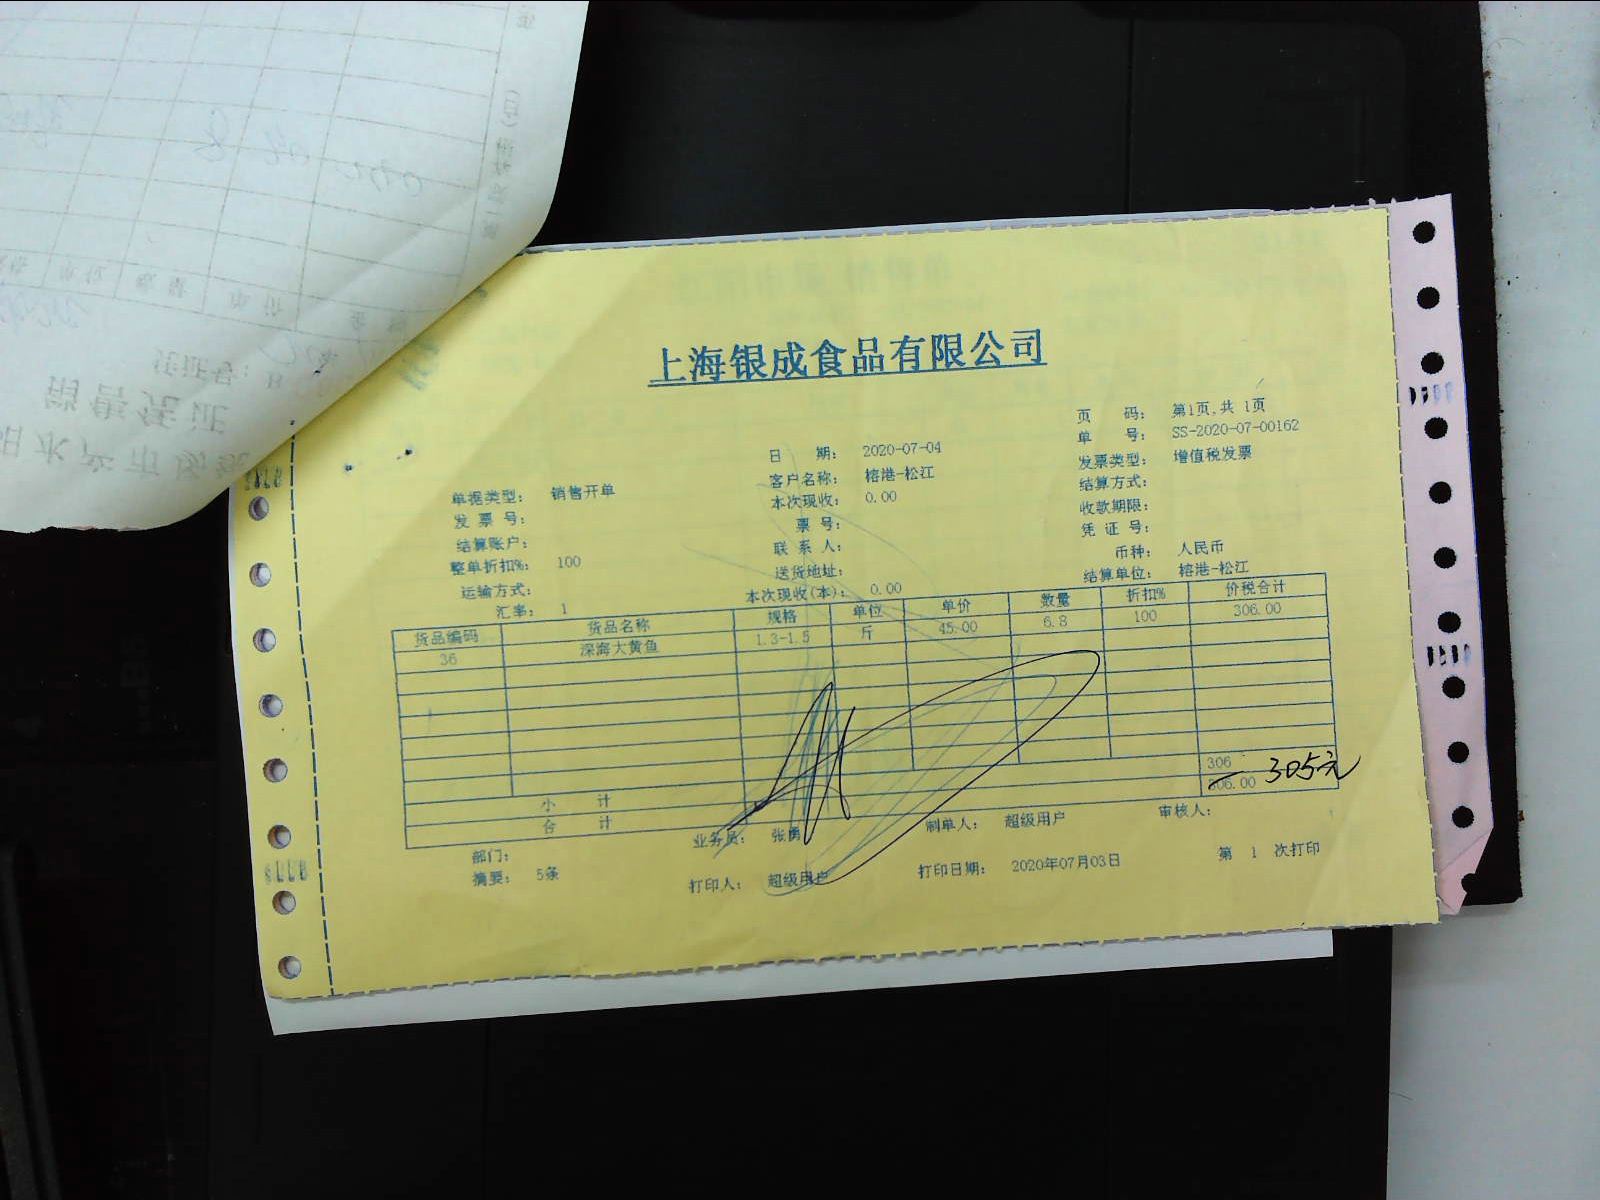 上海银成食品有限公司
页 码： 第1页,共 1页
日 期： 2020-07-04 单 号： SS-2020-07-00162
单据类型： 销售开单 客户名称： 榕港-松江 发票类型： 增值税发票
发 票 号： 本次现收： 0.00 结算方式：
结算账户： 票号： 收款期限：
整单折扣%： 100 联 系 人： 凭 证 号：
运输方式： 送货地址： 币种： 人民币
汇率： 1 本次现收(本)： 0.00 结算单位： 榕港-松江
货品编码 货品名称 规格 单位 单价 数量 折扣% 价税合计
36 深海大黄鱼 1.3-1.5 斤 45.00 6.8 100 306.00
小 计 306
合 计 306.00 305元
部门： 业务员： 张勇 制单人： 超级用户 审核人：
摘要： 5条 打印人： 超级用户 打印日期： 2020年07月03日 第 1 次打印
销售凭证
凭证号：